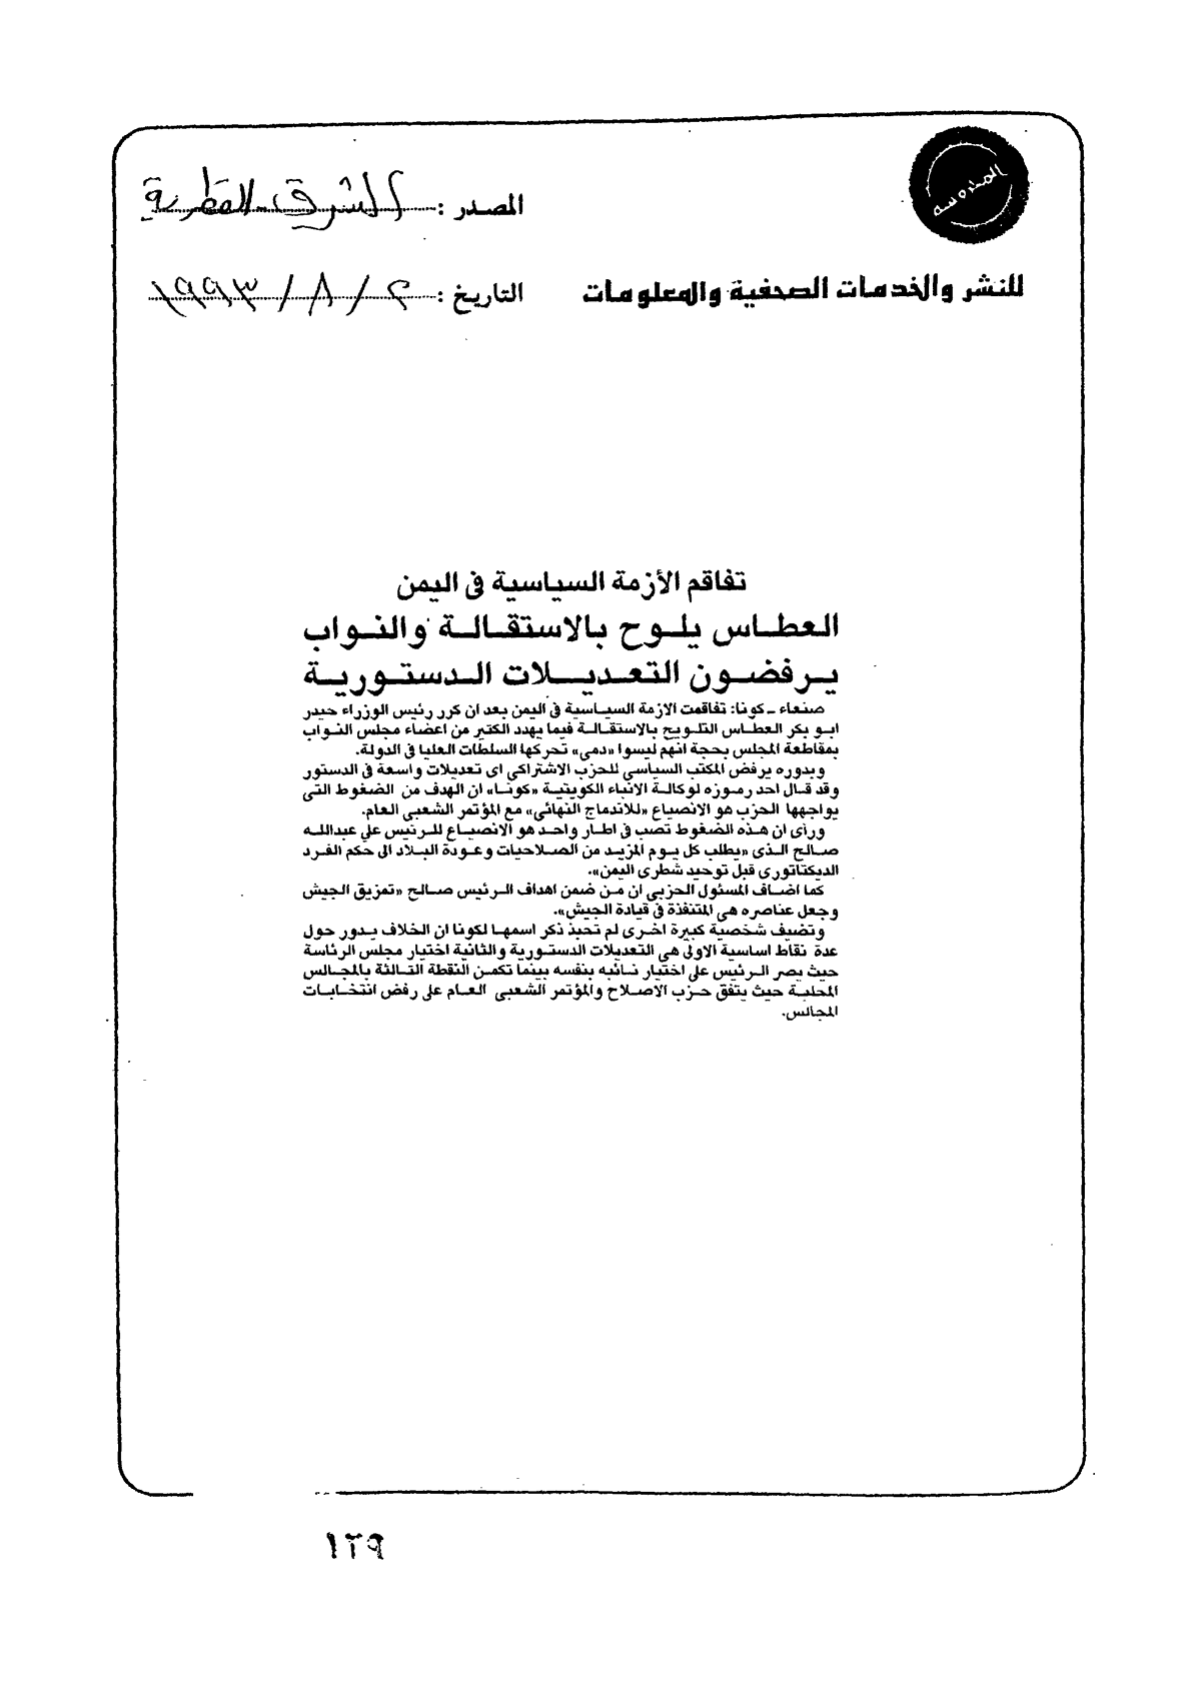 المصدر : الشرق القطرية
للنشر والخدمات الصحفية والمعلومات
التاريخ : ٢ / ٨ / ١٩٩٣
تفاقم الأزمة السياسية فى اليمن
العطاس يلوح بالاستقالة والنواب
يرفضون التعديلات الدستورية
صنعاء ـ كونا: تفاقمت الازمة السياسية فى اليمن بعد ان كرر رئيس الوزراء حيدر
ابو بكر العطاس التلويح بالاستقالة فيما يهدد الكثير من اعضاء مجلس النواب
بمقاطعة المجلس بحجة انهم ليسوا «دمى» تحركها السلطات العليا فى الدولة.
وبدوره يرفض المكتب السياسي للحزب الاشتراكى اى تعديلات واسعة فى الدستور
وقد قال احد رموزه لوكالة الانباء الكويتية «كونا» ان الهدف من الضغوط التى
يواجهها الحزب هو الانصياع «للاندماج النهائى» مع المؤتمر الشعبى العام.
ورأى ان هذه الضغوط تصب فى اطار واحد هو الانصياع للرئيس علي عبدالله
صالح الذى «يطلب كل يوم المزيد من الصلاحيات وعودة البلاد الى حكم الفرد
الديكتاتورى قبل توحيد شطرى اليمن».
كما اضاف المسئول الحزبي ان من ضمن اهداف الرئيس صالح «تمزيق الجيش
وجعل عناصره هى المتنفذة فى قيادة الجيش».
وتضيف شخصية كبيرة اخرى لم تحبذ ذكر اسمها لكونا ان الخلاف يدور حول
عدة نقاط اساسية الاولى هى التعديلات الدستورية والثانية اختيار مجلس الرئاسة
حيث يصر الرئيس على اختيار نائبه بنفسه بينما تكمن النقطة الثالثة بالمجالس
المحلية حيث يتفق حزب الاصلاح والمؤتمر الشعبى العام على رفض انتخابات
المجالس.
١٢٩